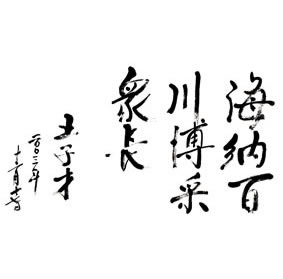 海纳百
川博采
众长
王子才
二〇〇二年
十二月十七日